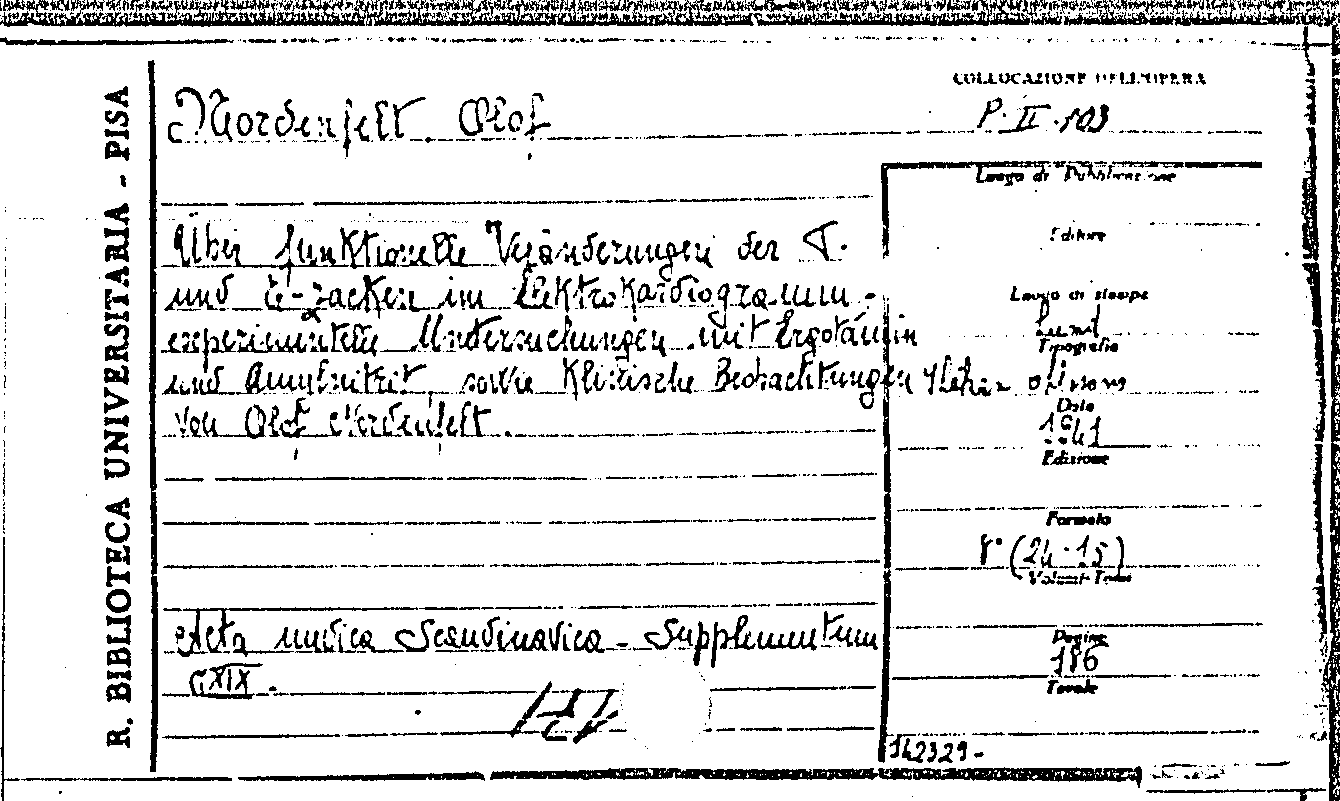 R. BIBLIOTECA UNIVERSITARIA - PISA
COLLOCAZIONE DELL'OPERA
P. II. 103
Nordenfelt Olof
Über funktionelle Veränderungen der P.
und T-zacken im Elektrokardiogramm -
experimentelle Untersuchungen mit Ergotamin
und Amylnitrit, sowie Klinische Beobachtungen
von Olof Nordenfelt.
Acta medica Scandinavica - Supplementum
CXIX.
Luogo di Pubblicazione
Editore
Luogo di stampa
Lund
Tipografia
Håkan Ohlsons
Data
1941
Edizione
Formato
8° (24-15)
Volumi-Tomi
Pagine
186
Tavole
142329-